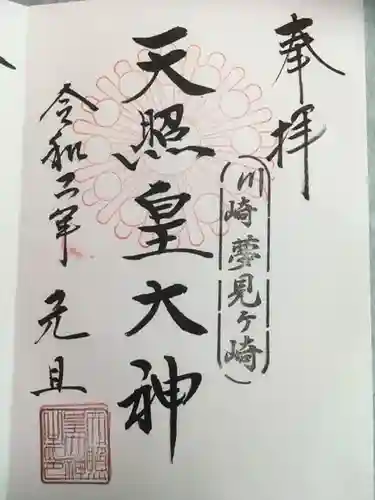 奉拝
(川崎夢見ヶ崎)
天照皇大神
令和二年 元旦